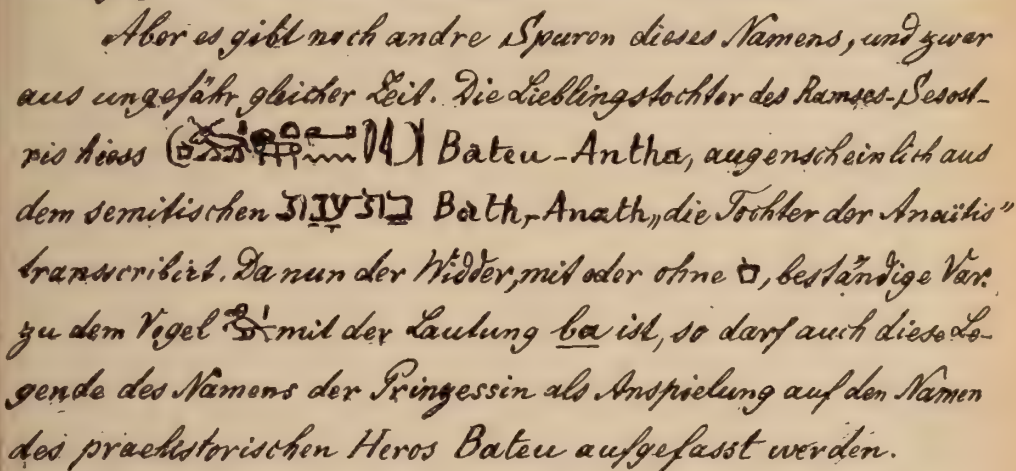 Aber es gibt noch andre Spuren dieses Namens, und zwar
aus ungefähr gleicher Zeit. Die Lieblingstochter des Ramses-Sesost-
ris hiess Bateu-Antha, augenscheinlich aus
dem semitischen בת־ענת Bath-Anath, „die Tochter der Anaïtis”
transscribirt. Da nun der Widder, mit oder ohne, beständige Var.
zu dem Vogel mit der Lautung ba ist, so darf auch diese Le-
gende des Namens der Prinzessin als Anspielung auf den Namen
des praehistorischen Heros Bateu aufgefasst werden.